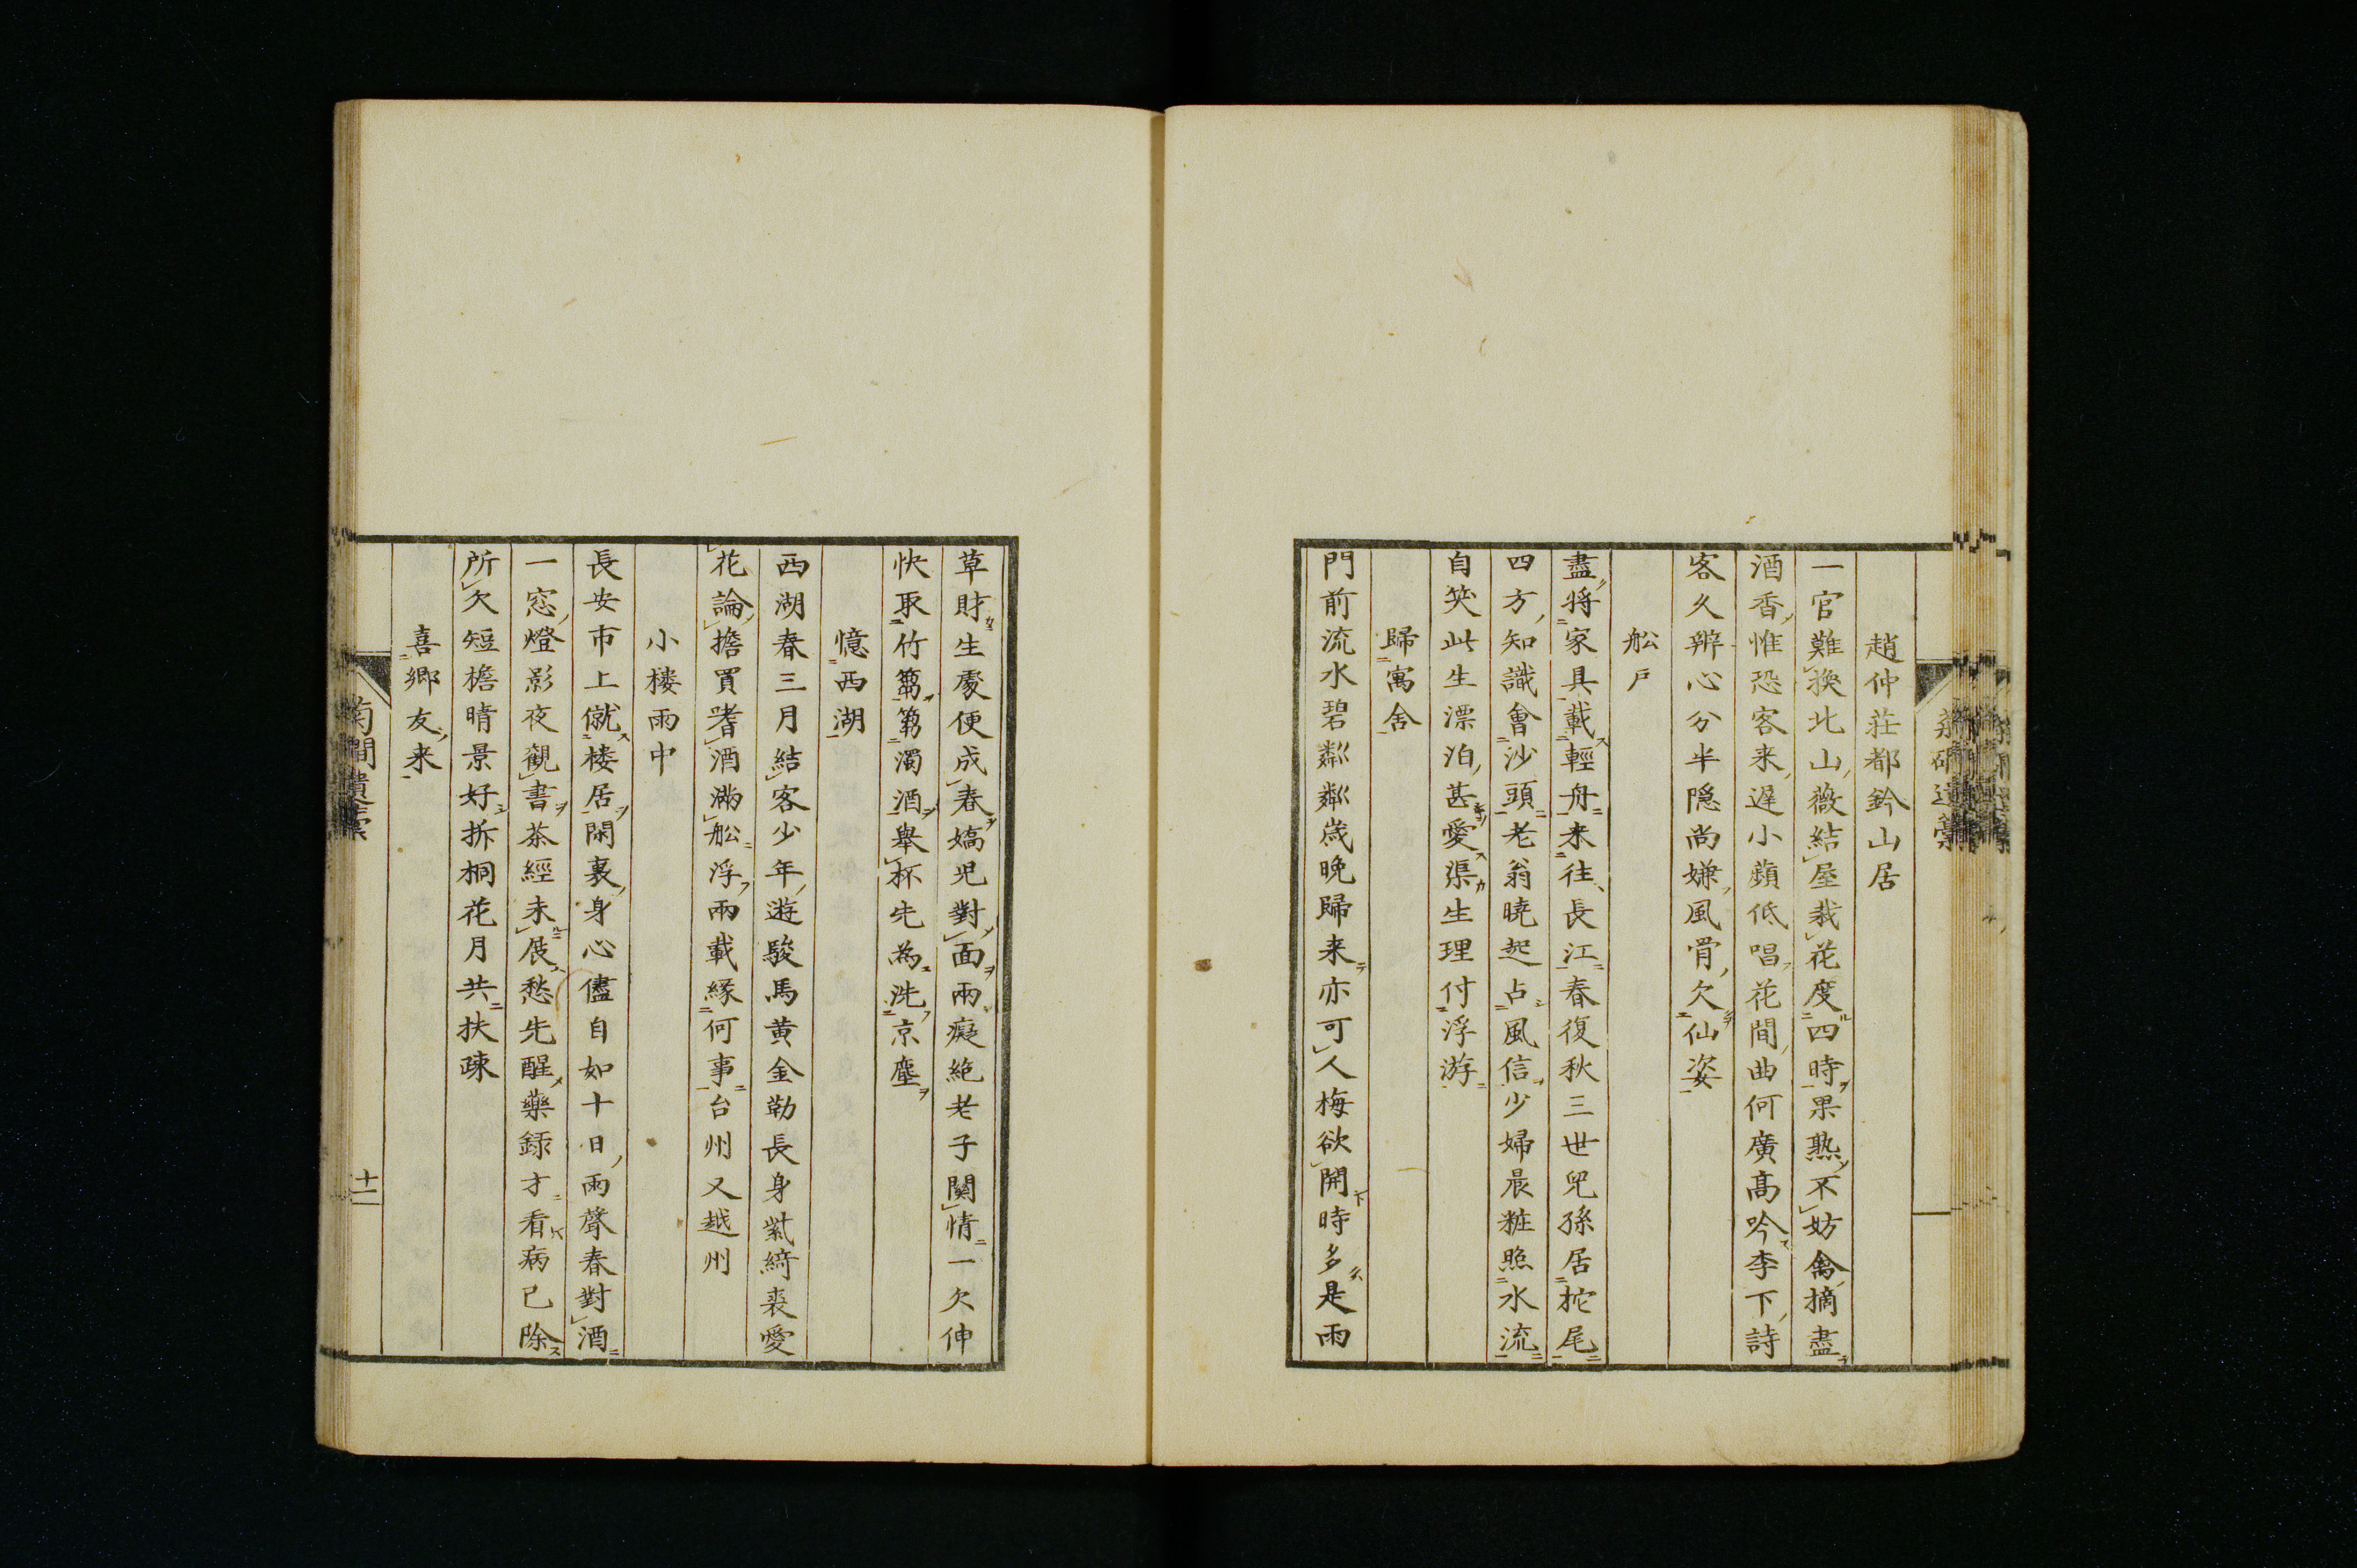 趙仲莊都鈐山居
一官難換北山薇結屋栽花度四時果熟不妨禽摘盡
酒香惟恐客来遲小蘋低唱花間曲何廣高吟李下詩
客久辨心分半隐尚嫌風骨欠仙姿
舩戶
盡將家具載輕舟来往長江春復秋三世兒孫居柁尾
四方知識會沙頭老翁曉起占風信少婦晨粧照水流
自笑此生漂泊甚愛渠生理付浮游
歸寓舍
門前流水碧粼粼歲晚歸来亦可人梅欲開時多是雨
草財生處便成春嬌兒對面兩癡絕老子關情一欠伸
快取竹篘篘濁酒舉杯先為洗京塵
憶西湖
西湖春三月結客少年遊駿馬黄金勒長身紫綺裘愛
花論擔買嗜酒滿舩浮兩載緣何事台州又越州
小樓雨中
長安市上僦楼居閑裏身心儘自如十日雨聲春對酒
一窓燈影夜觀書茶經未展愁先醒藥録才看病已除
所欠短檐晴景好拆桐花月共扶疎
喜鄉友来
十二